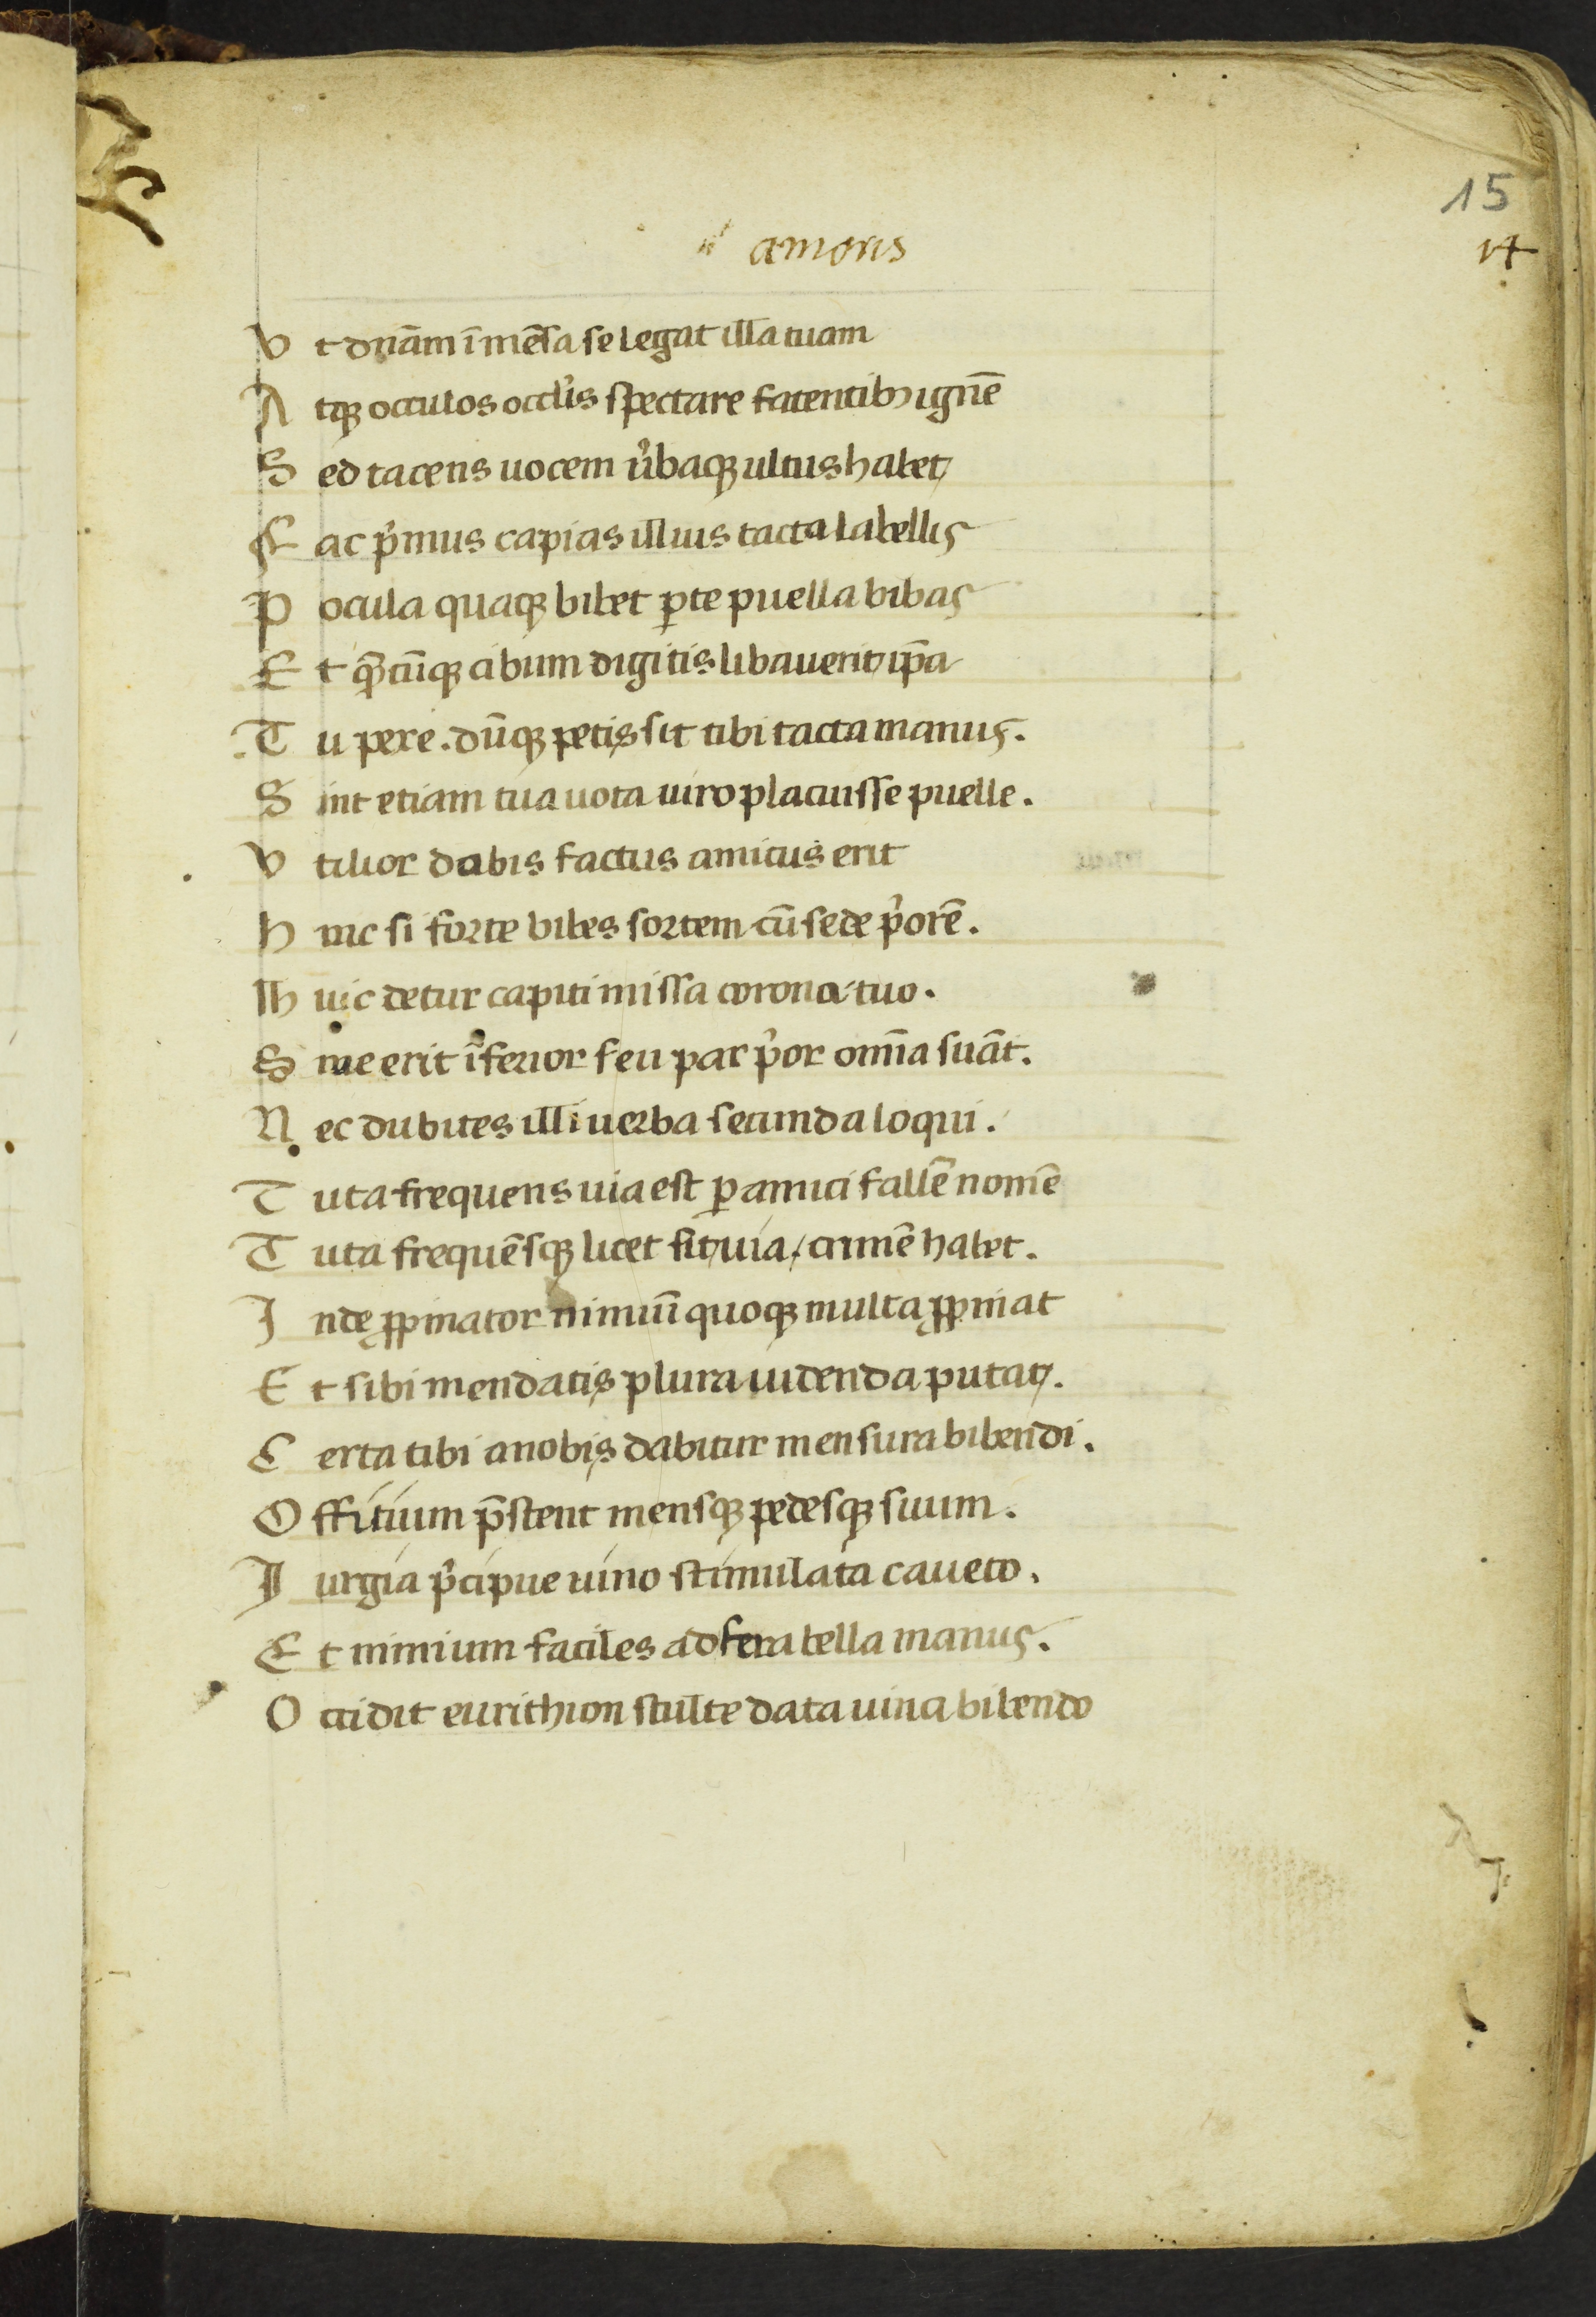 15
14
amoris
Vt dn̄am ī mēsa se legat illa tuam
Atqꝫ occulos occl̓is spectare fatentibꝫ ignē
Sed tacens uocem u̓baqꝫ ultus habet
Fac p̓mus capias illius tacta labellis
Pocula quaqꝫ bibet ꝑte puella bibas
Et qōcūqꝫ cibum digitis libauerit ip̄a
Tu pere. dūqꝫ petis sit tibi tacta manus.
Sint etiam tua uota uiro placuisse puelle.
Vtilior dabis factus amicus erit
Hinc si forte bibes sortem cū sede p̓orē.
Huic detur capiti missa corona tuo.
Siue erit īferior seu par p̓or omīa suāt.
Nec dubites illi uerba secunda loqui.
Tuta frequens uia est ꝑ amici fallē nomē
Tuta frequēsqꝫ licet sit uia, crimē habet.
Inde ꝓpinator nimiū quoqꝫ multa ꝓpinat
Et sibi mendatis plura uidenda putat.
Certa tibi anobis dabitur mensura bibendi.
Offitium p̄stent mensqꝫ pedesqꝫ suum.
Iurgia p̓cipue uino stimulata caueto.
Et nimium faciles ad fera bella manus.
Occidit eurithion stulte data uina bibendo